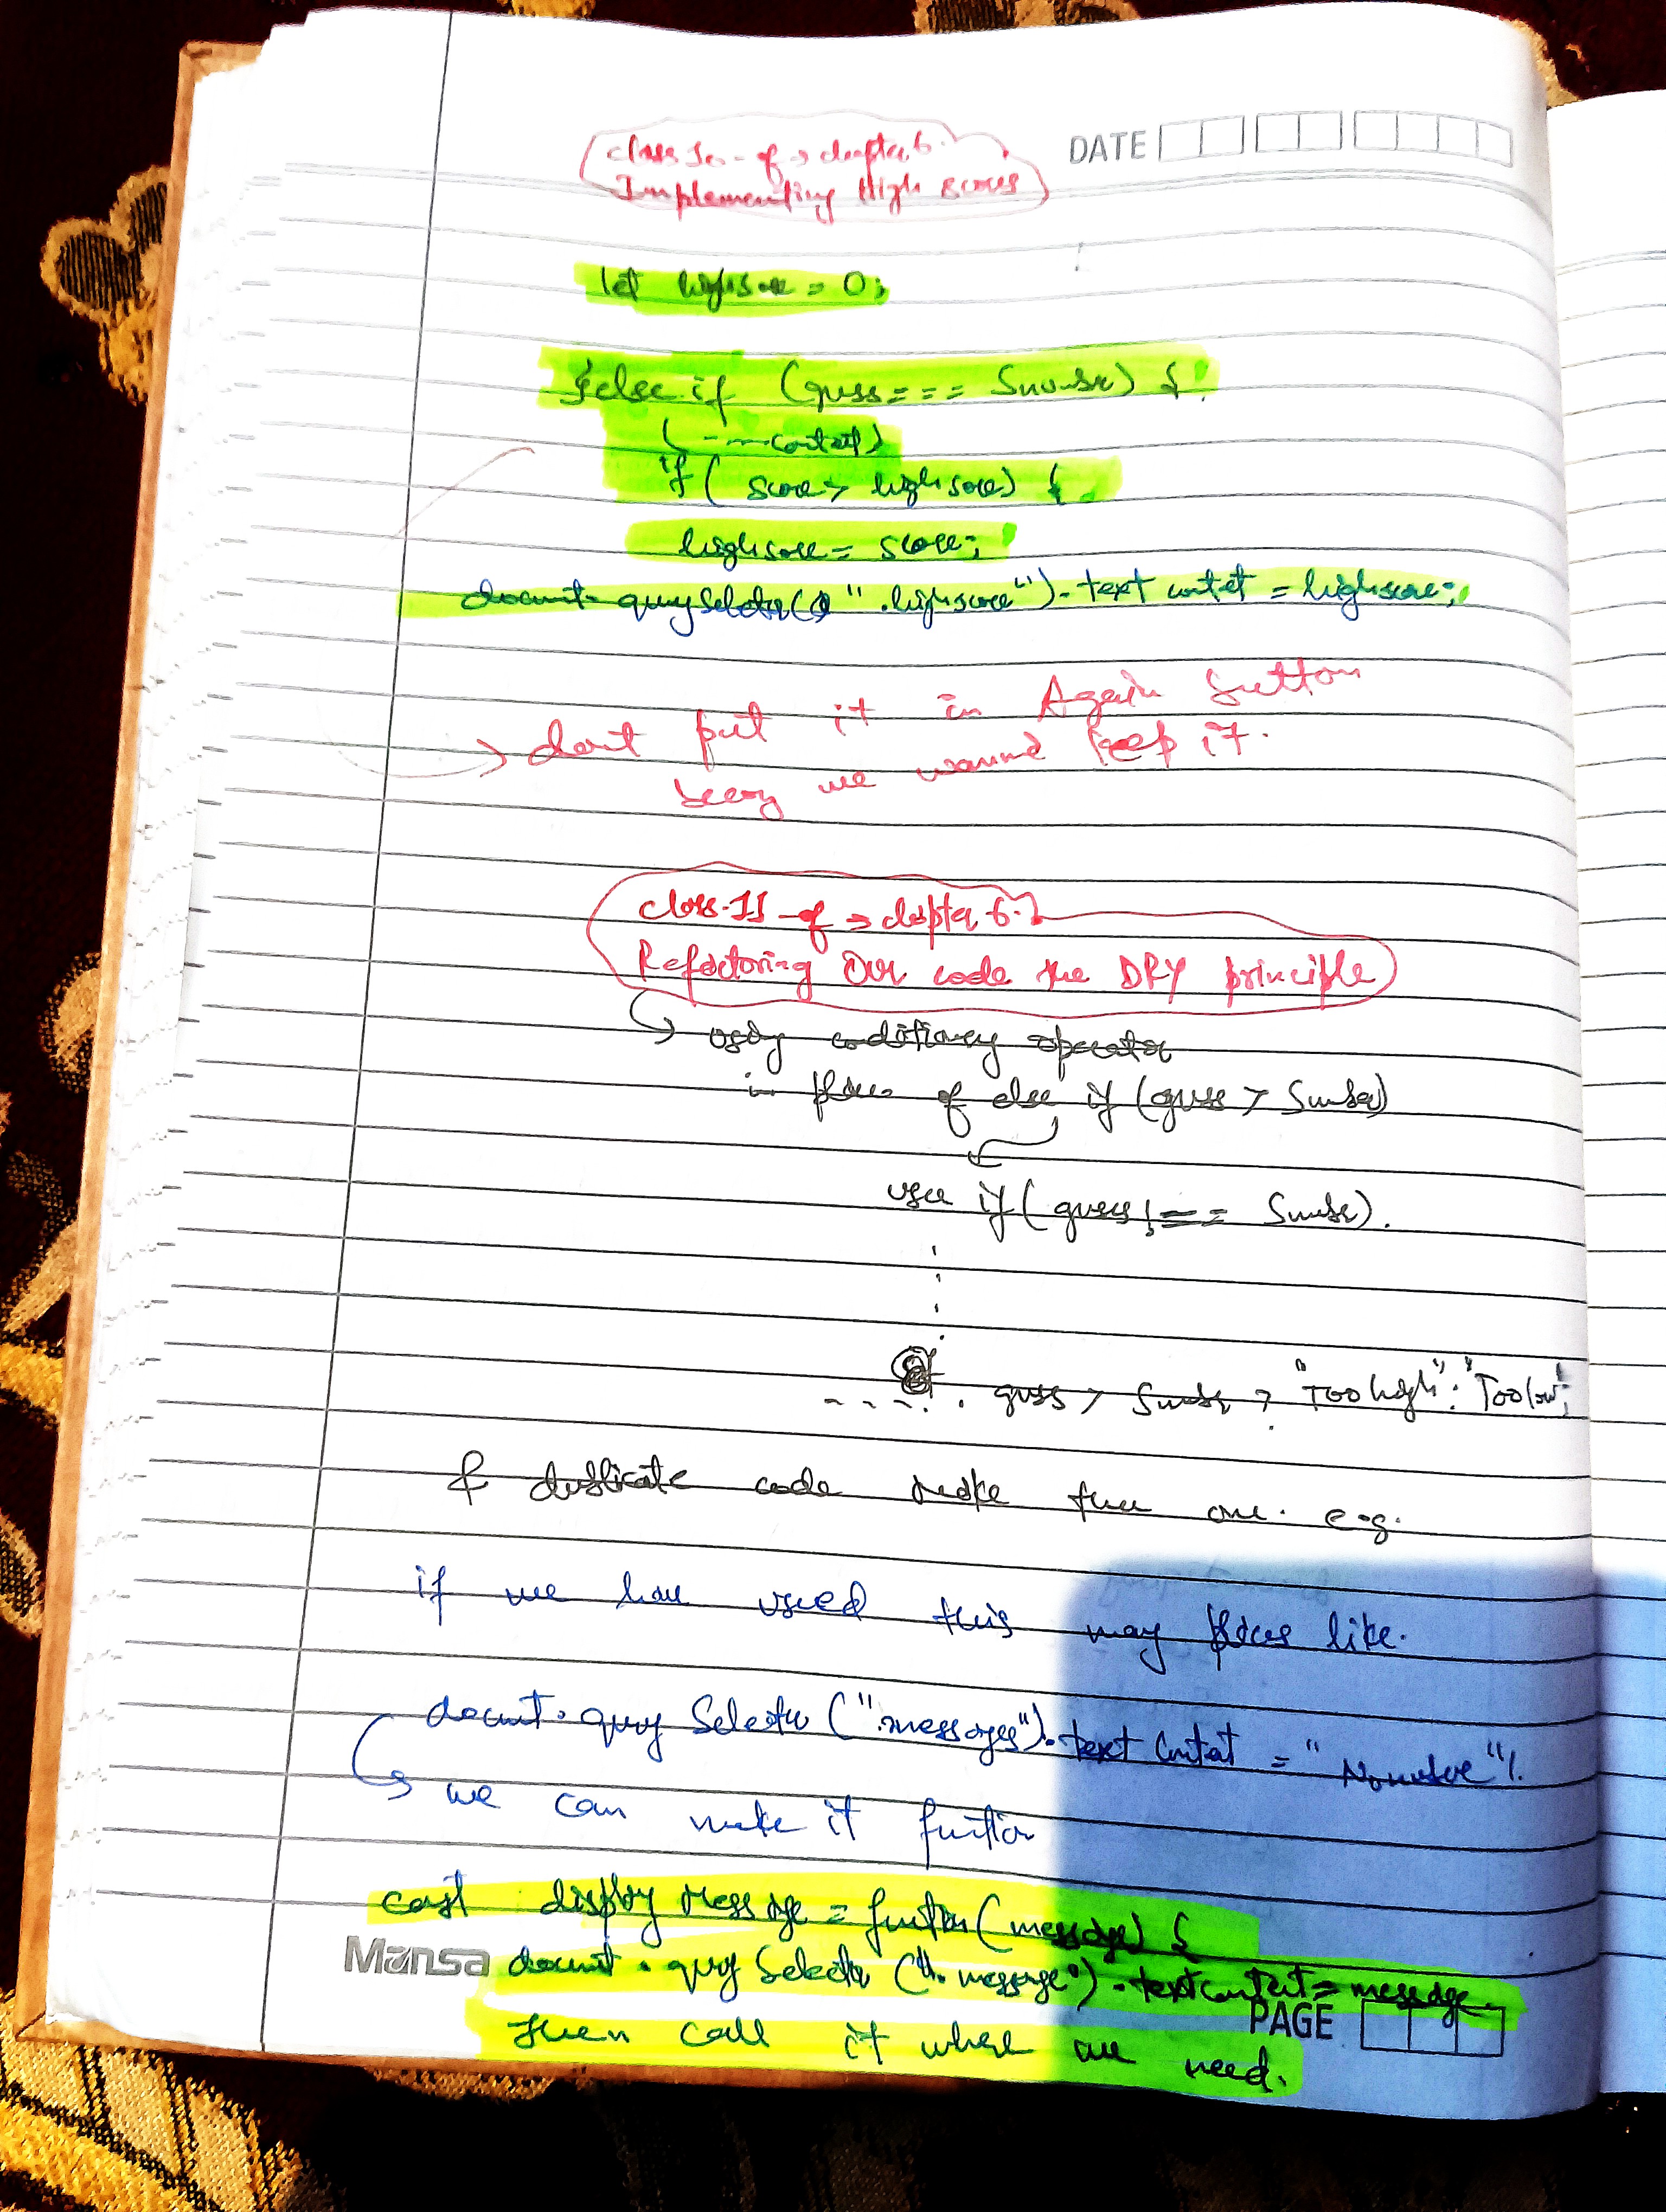 class 10 - of → chapter 6.
Implementing High scores
DATE
let highscore = 0;
}else if (guss === Snumbr) {
(---content)
if ( score > highscore) {
highscore = score;
document.querySelector( ".highscore").textcontent = highscore;
→ dont put it in Again button
we wanna keep it.
class-11-of → chapter 6.
Refactoring Our code the DRY principle
↳ operator
in place of else if (guss > Snumbr)
use if( guess !== Snumbr).
----. guss > Snumbr ? "Too high" : "Too low";
& dublicate code make one. e.g.
if we have used this many places like.
document.query Selector (".messages").textContent = "
↳ we can make it function
const display Message = function (message) {
document.query Selector (".message").textContent = message.
then call it where we need.
Mansa
PAGE